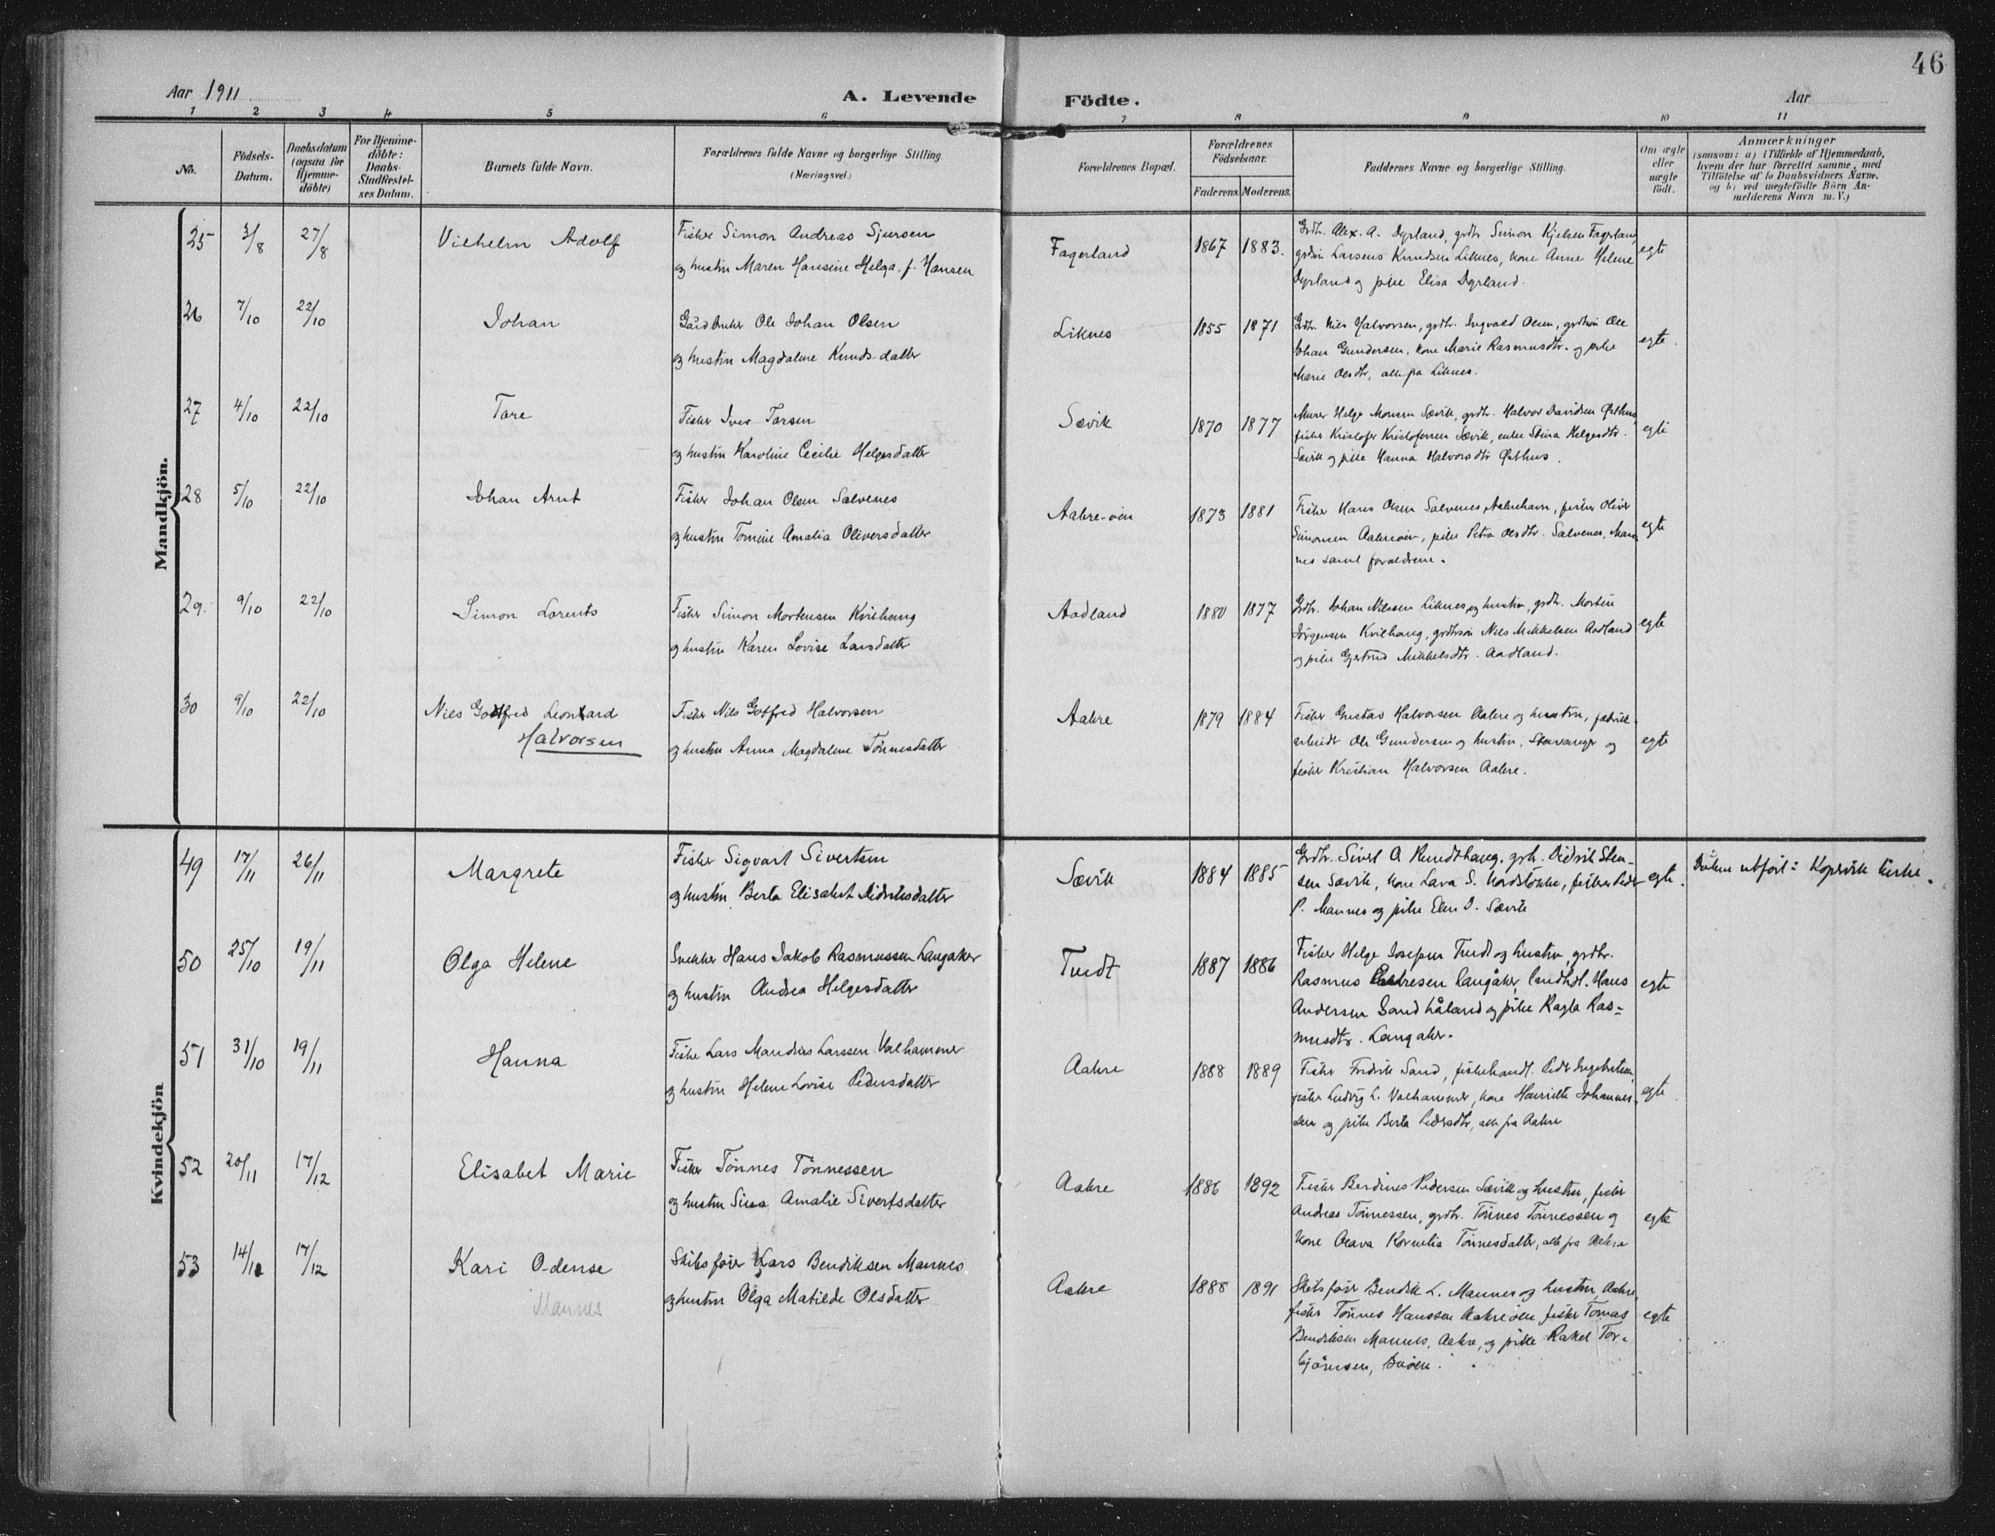 46
Aar 1911
A. Levende
Födte.
Aar
1 2 3 4 5 6 7 8 9 10 11
No.
Födsels-
Datum.
Daabsdatum
(ogsaa for
Hjemme-
döbte)
For Hjemme-
döbte:
Daabs-
Stadfestel-
ses Datum.
Barnets fulde Navn.
Forældrenes fulde Navne og borgerlige Stilling
(Næringsvei.)
Forældrenes Bopæl.
Forældrenes
Födselsaar.
Faderens. Moderens.
Faddernes Navne og borgerlige Stilling.
Om ægte
eller
uægte
födt.
Anmærkninger
(saasom: a) i Tilfælde af Hjemmedaab,
hvem der har forrettet samme, med
Tilföielse af to Daabsvidners Navne.
og b) ved uegtefödte Börn An-
melderens Navn m. V.)
Mandkjön.
25 3/8 27/8 Vilhelm Adolf
Fisker Simon Andreas Sjursen
og hustru Maren Hansine Helga f. Hansen
Fagerland 1867 1883.
Grdbr. Alex. A. Dyrland, grdbr Simon Kjelsen Fagerland,
grdsøn Larsens Knudsen Liknes, kone Anne Helene
Dyrland og pike Elisa Dyrland.
egte
26 7/10 22/10 Johan
Gårdbruker Ole Johan Olsen
og hustru Magdalene Knuds-datter
Liknes 1855 1871
Grdbr. Nils Halvorsen, grdbr. Ingvald Olsen, grdbrsøn Ole
Johan Gundersen, kone Marie Rasmusdtr. og pike
Marie Olsdtr, alle fra Liknes.
egte.
27 4/10 22/10 Tore
Fisker Iver Torsen
og hustru Karoline Cecilie Helgesdatter
Sævik 1870 1877
Murer Helge Monsen Sævik, grdbr. Halvor Davidsen Østhus,
fisker Kristofer Kristofersen Sævik, enke Stina Helgesdtr.
Sævik og pike Hanna Halvorsdtr Østhus.
egte
28 5/10 22/10 Johan Arnt
Fisker Johan Olsen Salvenes
og hustru Tomine Amalia Oliversdatter
Aakre-øen 1873 1881
Fisker Hans Olsen Salvenes, Aakrehavn, fisker Oliver
Simonsen Aakreøen, pike Petra Olsdtr. Salvenes, Man-
nes samt forældrene.
egte
29. 9/10 22/10 Simon Lorents
Fisker Simon Mortensen Kvilhaug
og hustru Karen Lovise Larsdatter
Aadland 1880 1877
Grdbr. Johan Nilssen Liknes og hustru, grdbr. Morten
Jörgensen Kvilhaug, grdbrsøn Nils Mikkelsen Aadland
og pike Gjertrud Mikkelsdtr. Aadland.
egte
30 9/10 22/10 Nils Gotfred Leonhard
Halvorsen
Fisker Nils Gotfred Halvorsen
og hustru Anna Magdalene Tönnesdatter
Aakre 1879 1884
Fisker Gustav Halvorsen Aakre og hustru, fabrik-
arbeidr Ole Gundersen og hustru, Stavanger og
fisker Kristian Halvorsen Aakre.
egte
Kvindekjön
49 17/11 26/11 Margrete
Fisker Sigvart Sivertsen
og hustru Berta Elisabet Didriksdatter
Sævik 1884 1885
Grdbr. Sivert O. Rundthaug, grbr. Didrik Sten-
sen Sævik, kone Lava S. Nordstokke, fisker Peder
P. Mannes og pike Elen D. Sævik
egte.
Dåben utført i Kopervik kirke.
50 25/10 19/11 Olga Helene
Snekker Hans Jakob Rasmussen Langaker
og hustru Andrea Helgesdatter
Tuedt 1887 1886
Fisker Helge Josepsen Tuedt og hustru, grdbr.
Rasmus Langåker, landhdl. Hans
Andersen Sandhåland og pike Ragla Ras-
musdtr. Langaker.
egte
51 31/10 19/11 Hanna
Fisker Lars Mandius Larssen Valhammer
og hustru Helene Lovise Pedersdatter
Aakre 1888 1889
Fisker Fredrik Sand, fiskehandl. Pedr Ingebretsen,
fisker Ludvig L. Valhammer, kone Henriette Johannes-
sen og pike Berta Pedersdtr, alle fra Aakre
egte
52 20/11 17/12 Elisabet Marie
Fisker Tönnes Tönnessen
og hustru Sina Amalie Sivertsdatter
Aakre 1886 1892
Fisker Berdines Pedersen Sævik og hustru, fisker
Andreas Tönnessen, grdbr. Tönnes Tönnessen og
kone Olava Kornelia Tönnesdatter, alle fra Aakre
egte
53 14/12 17/12 Kari Odense
Mannes
Skibsfører Lars Bendiksen Mannes
og hustru Olga Matilde Olsdatter
Aakre 1888 1891
Skibsfører Bendik L. Mannes og hustru, Aakre,
fisker Tönnes Hanssen Aakreøen, fisker Tomas
Bendiksen Mannes, Aakre, og pike Rakel Tor-
björnsen, Buöen.
egte